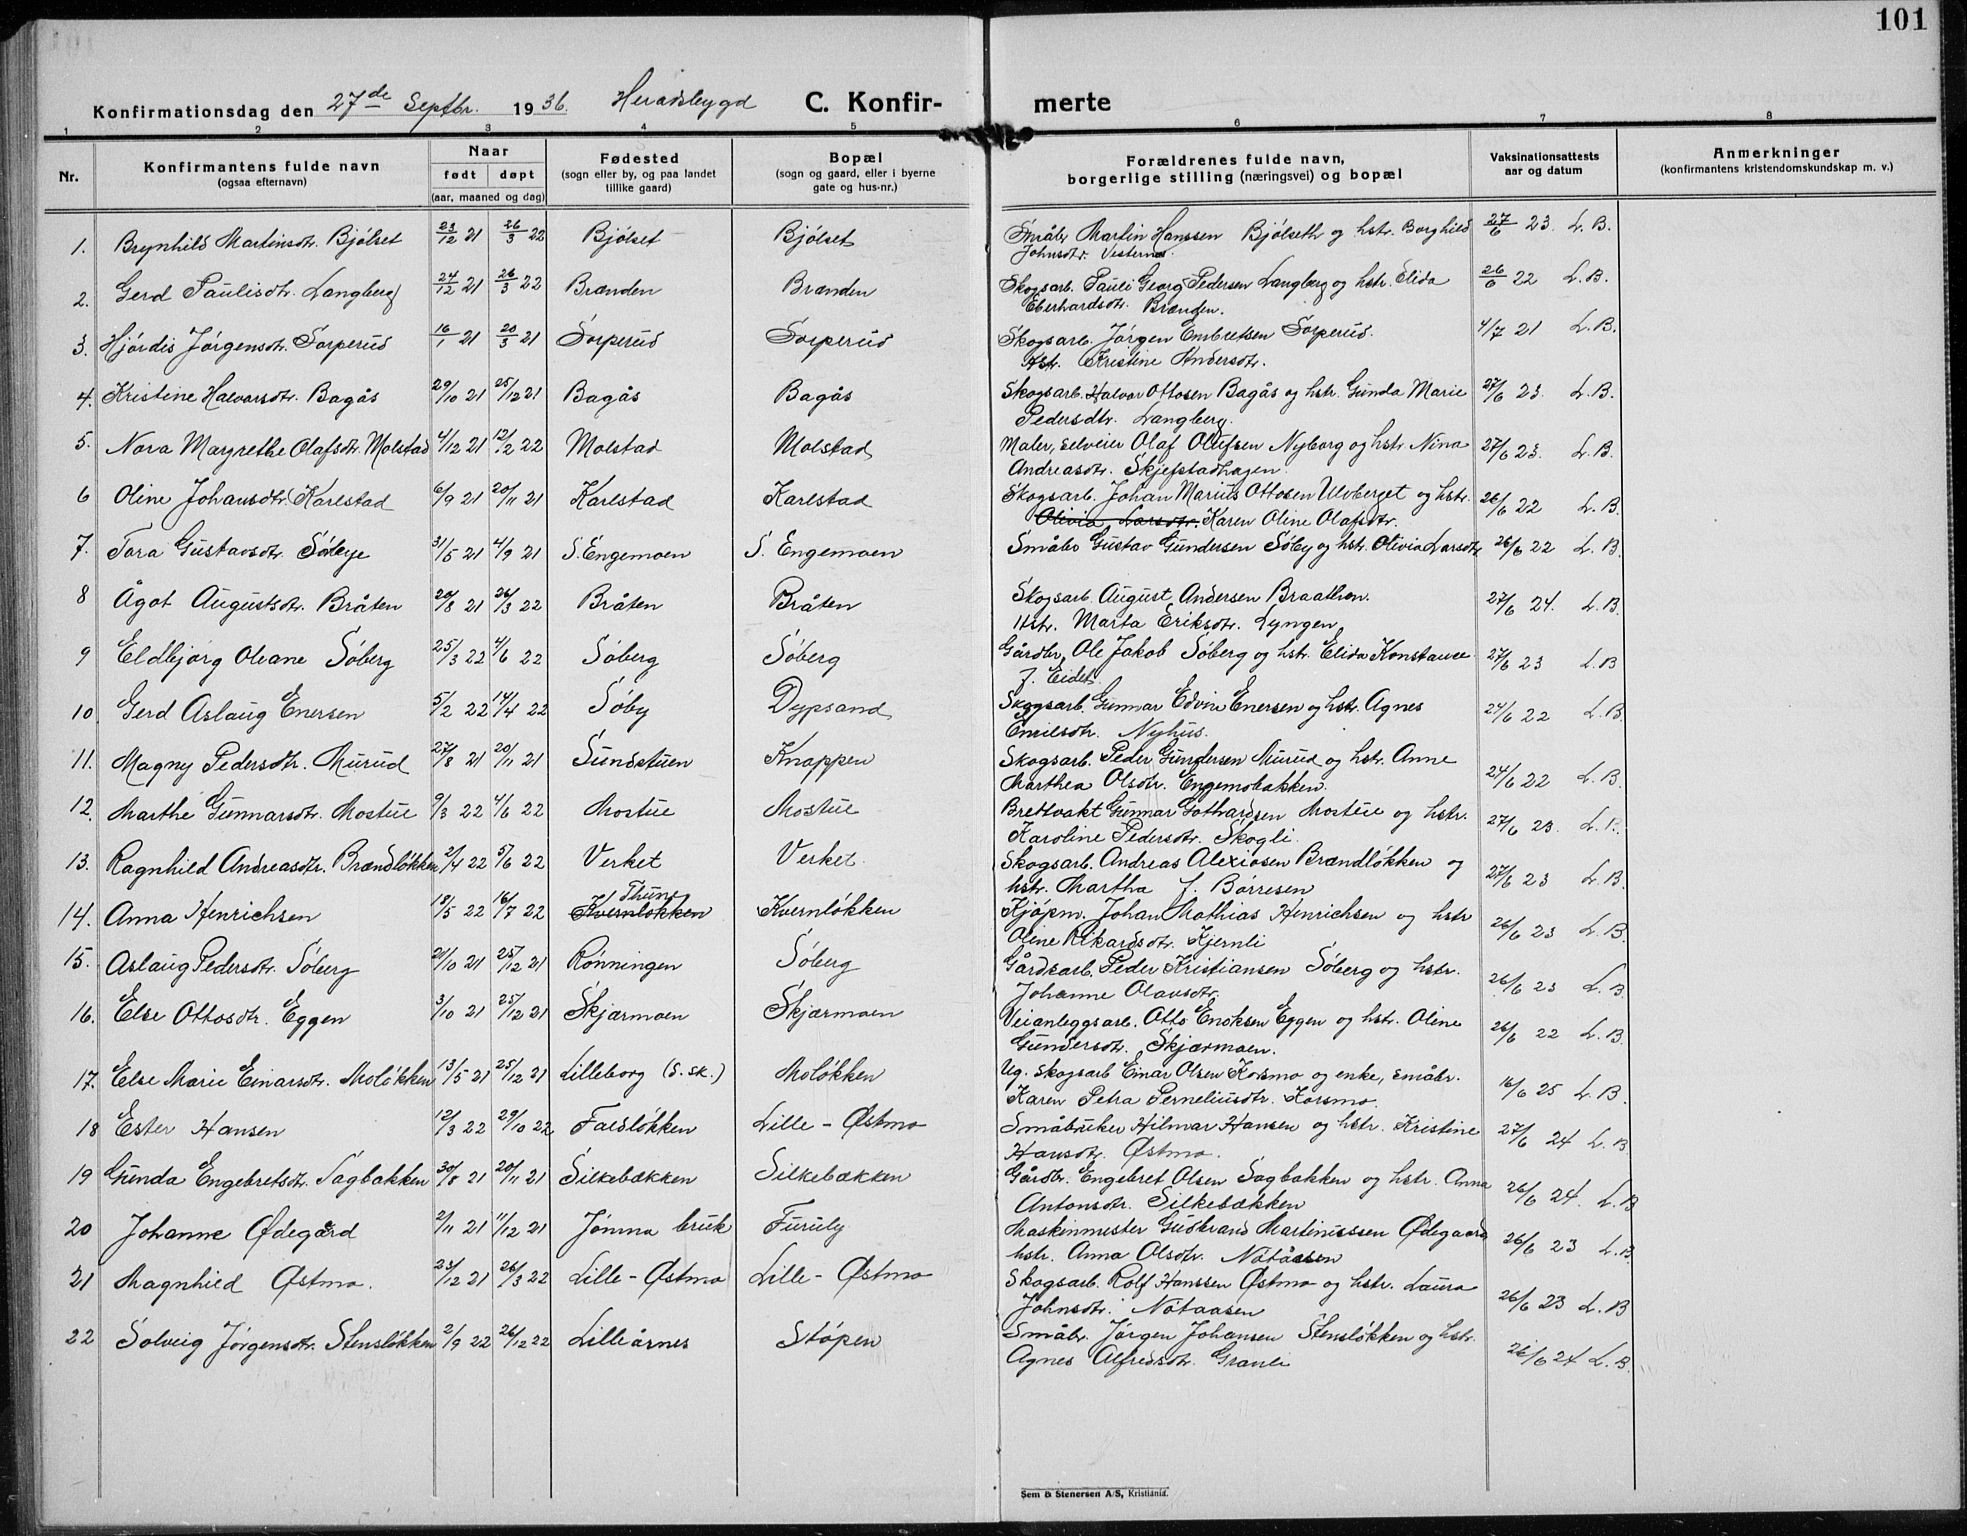 101
Konfirmationsdag den 27de Septbr. 1936. Heradsbygd C. Konfirmerte
1 2 3 4 5 6 7 8
Nr. Konfirmantens fulde navn (ogsaa efternavn) Naar født døpt (aar, maaned og dag) Fødested (sogn eller by, og paa landet tillike gaard) Bopæl (sogn og gaard, eller i byerne gate og hus-nr.) Forældrenes fulde navn, borgerlige stilling (næringsvei) og bopæl Vaksinationsattests aar og datum Anmerkninger (konfirmantens kristendomskundskap m. v.)
1. Brynhild Martinsdtr. Bjølset 23/12 21 26/3 22 Bjølset Bjølset Småbr. Martin Hanssen Bjølseth og hstr. Borghild 27/6 23. L. B.
Johnsdtr. Vesternes
2. Gerd Paulisdtr. Langberg 24/12 21 26/3 22 Brænden Brænden Skogsarb. Pauli Georg Pedersen Langberg og hstr. Elida 26/6 22 L. B.
Eberhardsdtr. Brænden.
3. Hjørdis Jørgensdtr. Sorperud 16/1 21 20/3 21 Sorperud Sorperud Skogsarb. Jørgen Embretsen Sorperud. 4/7 21 L. B.
Hstr. Kristine Andersdtr.
4. Kristine Halvorsdtr. Bagås 29/10 21 25/12 21 Bagås Bagås Skogsarb. Halvor Ottosen Bagås og hstr. Gunda Marie 27/6 23. L. B.
Pedersdtr. Langberg.
5. Nora Margrethe Olafsdtr. Molstad 4/12 21 12/2 22 Molstad Molstad Maler, selveier Olaf Olufsen Nyborg og hstr. Nina 27/6 23. L. B.
Andreasdtr. Skjefstadhagen.
6 Oline Johansdtr. Karlstad 6/9 21 20/11 21 Karlstad Karlstad Skogsarb. Johan Marius Ottosen Ulvberget og hstr. 26/6 22 L. B.
Olivia Larsdtr. Karen Oline Olafsdtr.
7. Tora Gustavsdtr. Søbye 31/5 21 4/9 21 S. Engemoen S. Engemoen Småbr Gustav Gundersen Søby og hstr. Olivia Larsdtr. 26/6 22 L. B.
8 Ågot Augustsdtr. Bråten 20/8 21 26/3 22 Bråten Bråten Skogsarb. August Andersen Braathen. 27/6 24. L. B.
Hstr. Marta Eriksdtr. Lyngen
9 Eldbjørg Oleane Søberg 25/3 22 4/6 22 Søberg Søberg Gårdbr. Ole Jakob Søberg og hstr. Elida Konstance 27/6 23 L. B
f. Eidet.
10 Gerd Aslaug Enersen 5/2 22 14/4 22 Søby Dypsand Skogsarb. Gunnar Edvin Enersen og hstr. Agnes 24/6 22 L. B.
Emilsdtr. Nyhus.
11. Magny Pedersdtr. Murud 27/8 21 20/11 21 Sundstuen Knappen Skogsarb. Peder Gundersen Murud og hstr. Anne 24/6 22 L. B.
Marthea Olsdtr. Engemobakken.
12. Marthe Gunnarsdtr. Mostue 9/3 22 4/6 22 Mostue Mostue Brettvakt Gunnar Gothardsen Mostue og hstr. 27/6 23. L. B.
Karoline Pedersdtr. Skogli.
13. Ragnhild Andreasdtr. Brændløkken 2/4 22 5/6 22 Verket Verket. Skogsarb. Andreas Alexiosen Brændløkken og 27/6 23 L. B.
hstr. Martha f. Børresen
14. Anna Henrichsen 18/5 22 16/7 22 Thung Kvernløkken Kvernløkken Kjøpm. Johan Mathias Henrichsen og hstr 26/6 23 L. B.
Oline Rikardsdtr. Kjernli
15. Aslaug Pedersdtr. Søberg 21/10 21 25/12 21 Rønningen Søberg Gårdsarb. Peder Kristiansen Søberg og hstr. 26/6 23 L. B.
Johanne Olausdtr.
16. Else Ottosdtr. Eggen 3/10 21 25/12 21 Skjærmoen Skjærmoen Veianleggsarb. Otto Enoksen Eggen og hstr. Oline 26/6 22 L. B.
Gundersdtr. Skjærmoen.
17. Else Marie Einarsdtr. Moløkken 13/5 21 25/12 21 Lilleborg (S. sk.) Moløkken Ug. Skogsarb Einar Olsen Korsmo og enke, småbr. 16/6 25 L. B.
Karen Petra Perneliusdtr. Korsmo.
18 Ester Hansen 12/3 22 29/10 22 Faldløkken Lille-Østmo Småbruker Hilmar Hansen og hstr. Kristine 27/6 24 L. B
Hansdtr. Østmo.
19 Gunda Engebretsdtr. Sagbakken 30/8 21 20/11 21 Silkebækken Silkebækken Gårdbr. Engebret Olsen Sagbakken og hstr. Anna 26/6 24. L. B
Antonsdtr. Silkebækken
20 Johanne Ødegård 2/11 21 11/12 21 Jømna bruk Furuly Maskinmester Gudbrand Martinussen Ødegaard 26/6 23 L. B.
hstr. Anna Olsdtr. Nøtåsen
21 Magnhild Østmo. 24/12 21 26/3 22 Lille-Østmo Lille-Østmo Skogsarb. Rolf Hanssen Østmo og hstr. Laura 26/6 23 L. B
Johnsdtr. Nøtaasen
22 Solveig Jørgensdtr. Stensløkken 2/9 22 26/12 22 Lilleårnes Støpen Småbr. Jørgen Johansen Stensløkken og hstr. 26/6 24 L. B.
Agnes Alfredsdtr. Granli
Sem & Stenersen A/S, Kristiania.